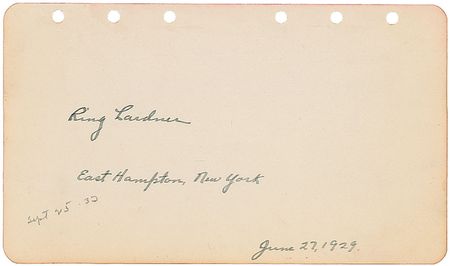 Ring Lardner
East Hampton, New York
Sept 25 · 33
June 27, 1929.